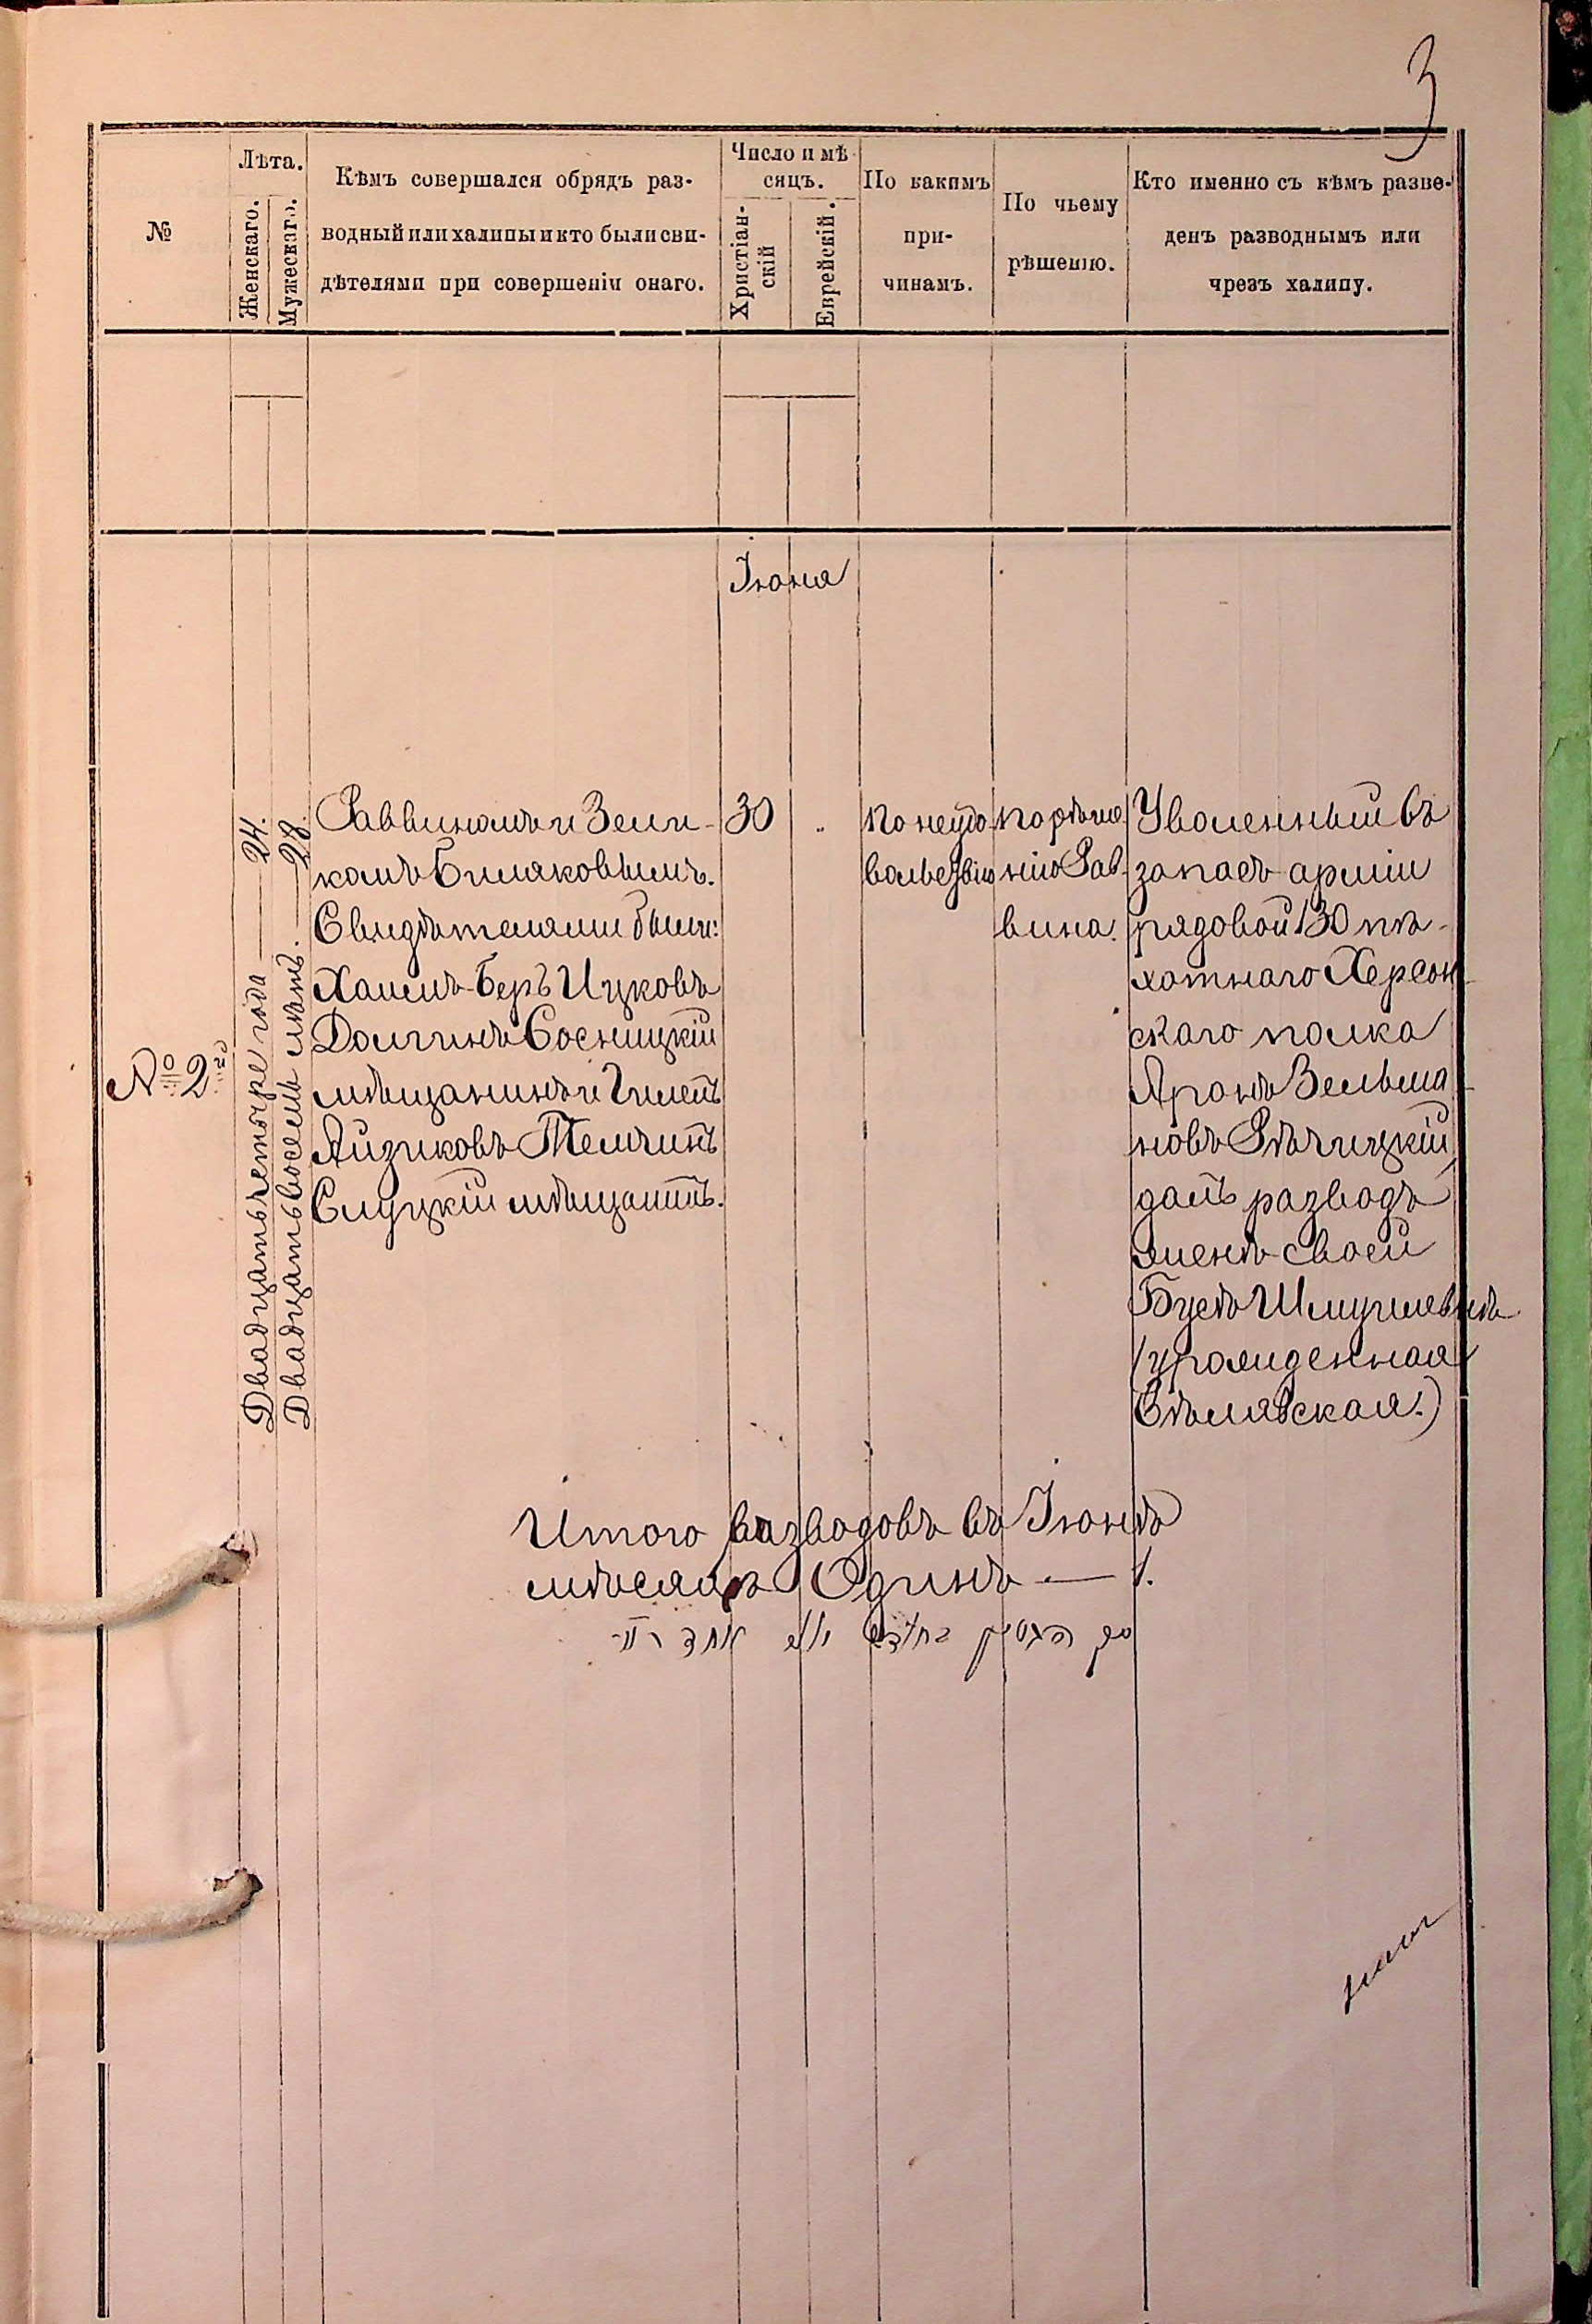 3
№
Лѣта.
Женскаго.
Мужескаго.
Кѣмъ совершался обрядъ раз-
водный или халипы и кто были сви-
дѣтелями при совершеніи онаго.
Число и мѣ
сяцъ.
Христіан-
скій
Еврейскій.
По какимъ
при-
чинамъ.
По чьему
рѣшенію.
Кто именно съ кѣмъ разве-
денъ разводнымъ или
чрезъ халипу.
Іюня
№ 2й
Двадцать четыре года — 24.
Двадцать восемь лѣтъ. — 28.
Раввиномъ и Зели-
комъ Симяковымъ.
Свидѣтелями были:
Хаимъ-Беръ Ицковъ
Долгинъ Сосницкій
мѣщанинъ и
Айзиковъ Темчинъ
Слуцкій мѣщанинъ.
30
"
По неудо-
вольствію
По рѣше-
нію Рав-
вина.
Уволенный въ
запасъ арміи
рядовой 130 пѣ-
хотнаго Херсон-
скаго полка
Аронъ Зельма-
новъ Рѣчицкій
далъ разводъ
женѣ своей
Бусѣ Шмулевнѣ
(урожденная
Сѣмявская.)
Итого разводовъ въ Іюнѣ
мѣсяцѣ Одинъ — 1.